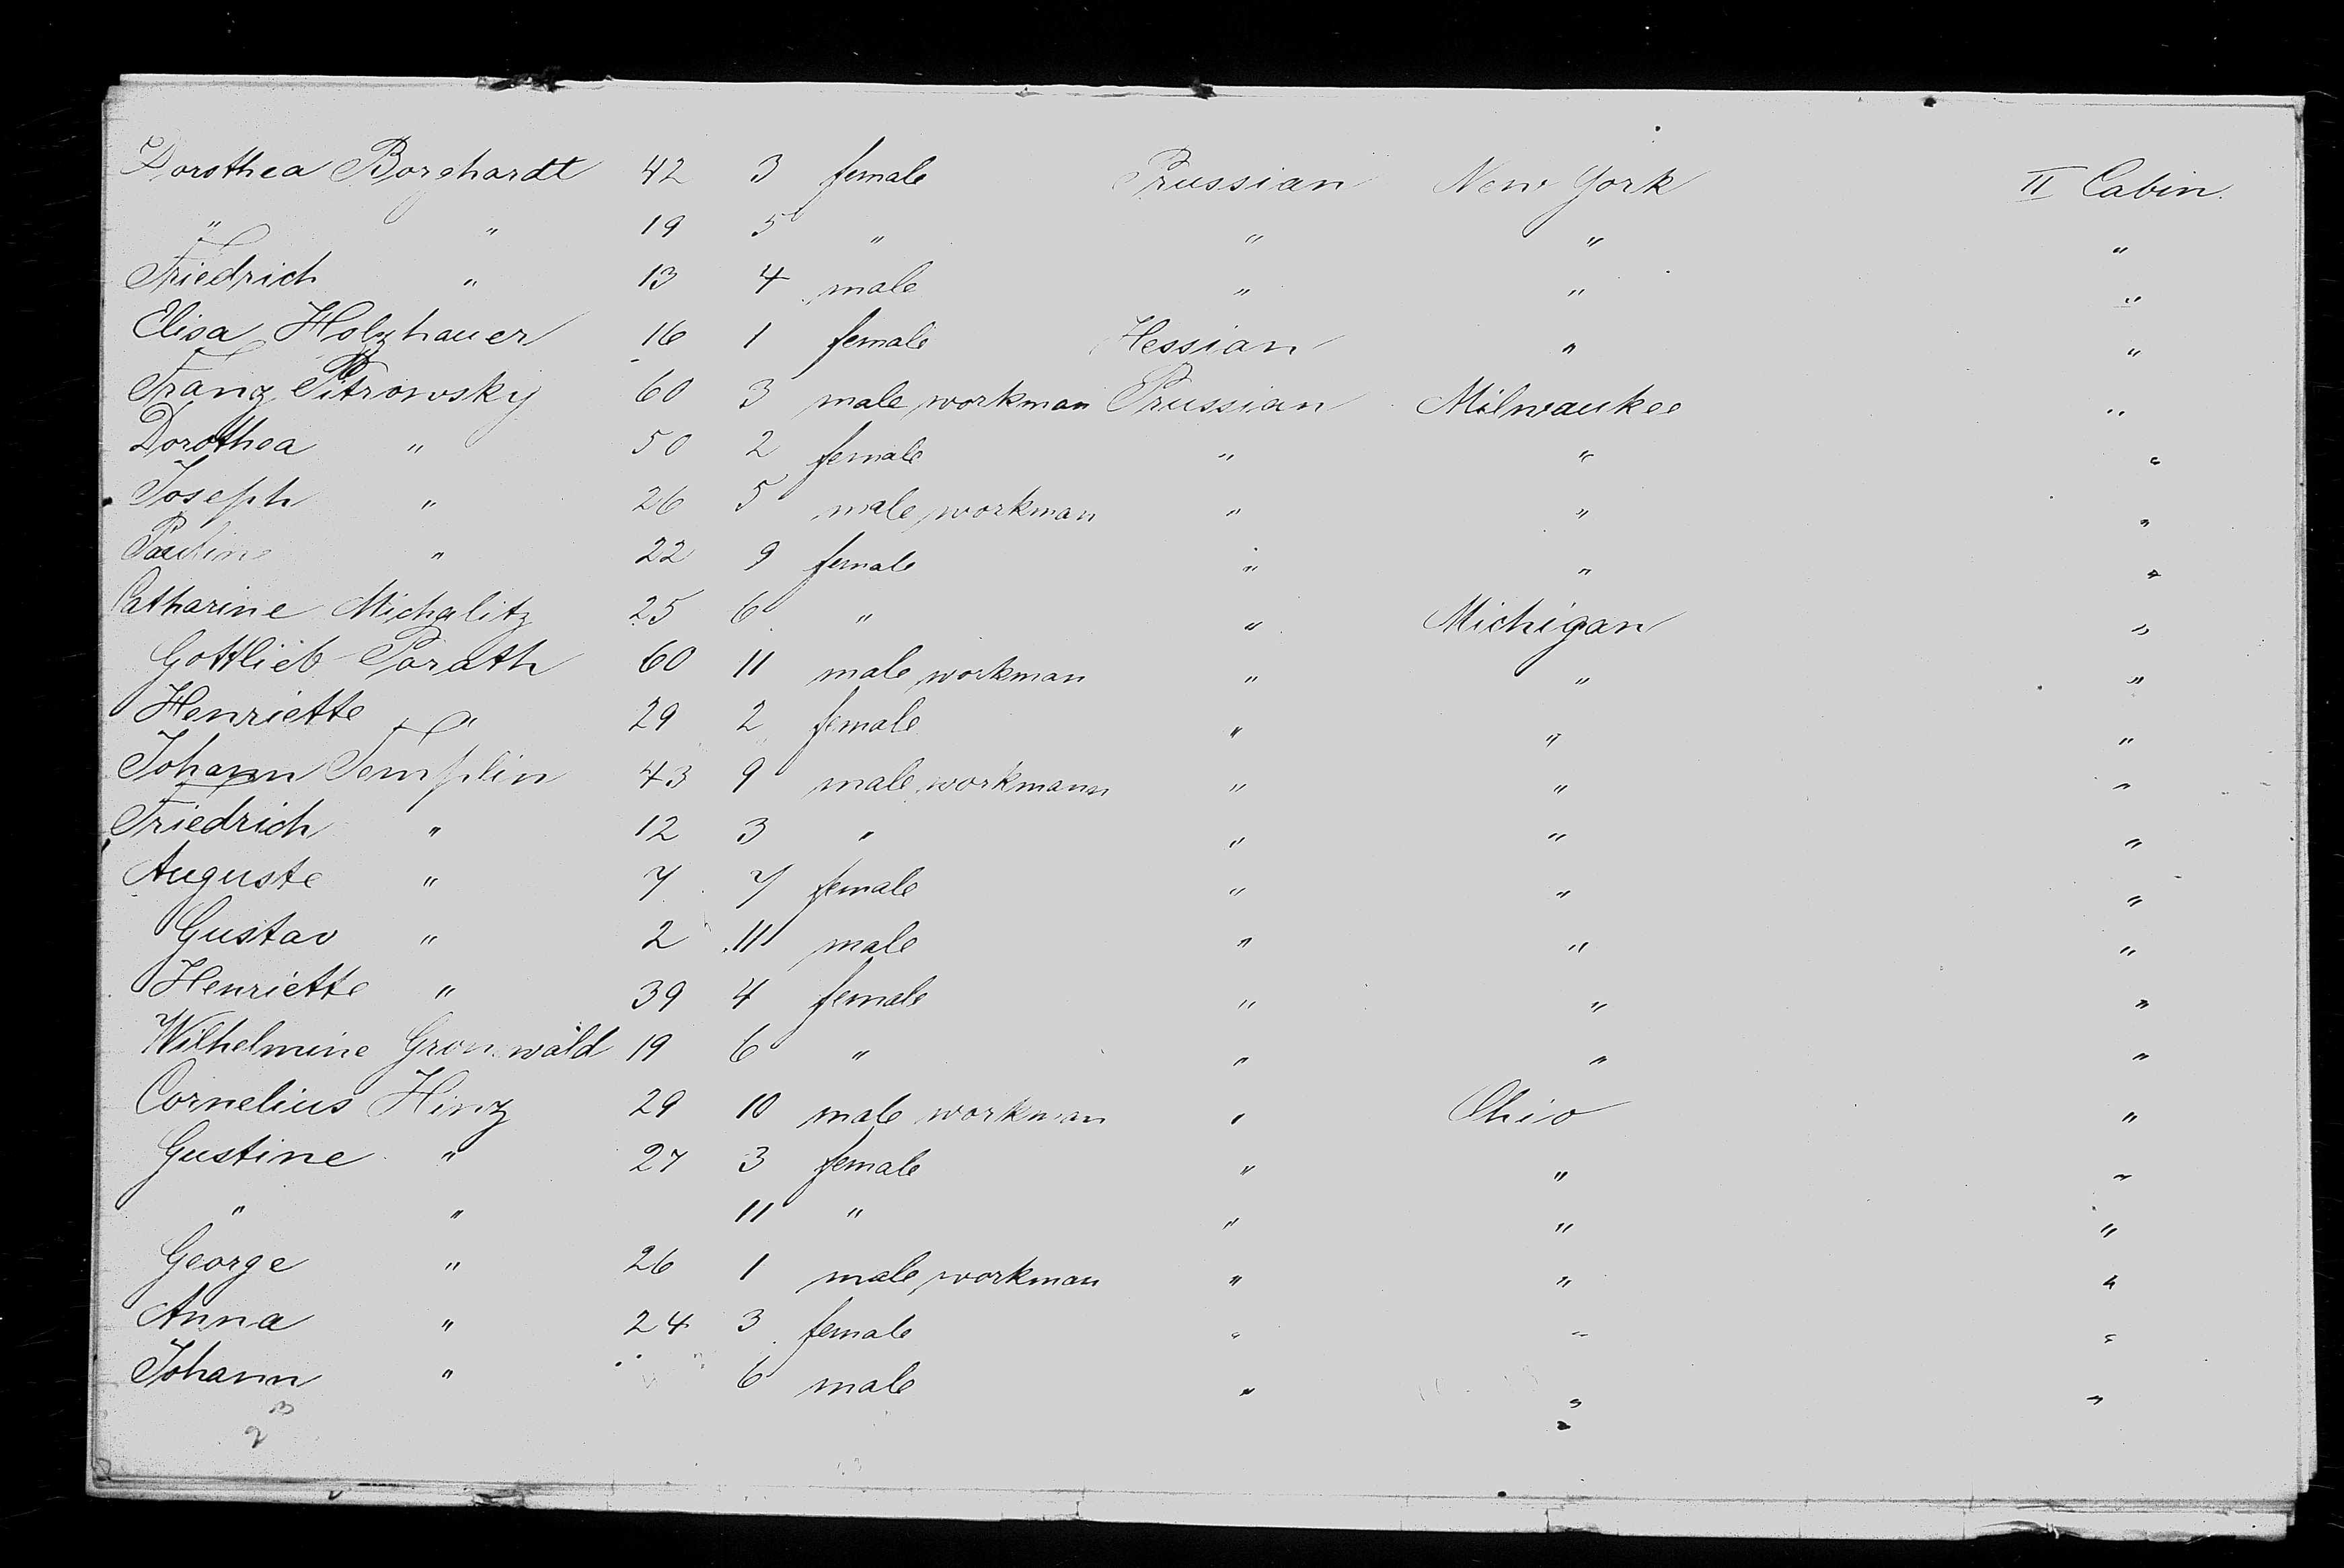 Dorothea Borghardt 42 3 female Prussian New York II Cabin.
" " 19 5 " " " "
Friedrich " 13 4 male " " "
Elisa Holzhauer 16 1 female Hessian " "
Franz Pitrowsky 60 3 male workman Prussian Milwaukee "
Dorothea " 50 2 female " " "
Joseph " 26 5 male workman " " "
Pauline " 22 9 female " " "
Catharine Michalitz 25 6 " " Michigan "
Gottlieb Porath 60 11 male workman " " "
Henriette " 29 2 female " " "
Johann Templin 43 9 male workmann " " "
Friedrich " 12 3 " " " "
Auguste " 7 7 female " " "
Gustav " 2 11 male " " "
Henriette " 39 4 female " " "
Wilhelmine Gronwald 19 6 " " " "
Cornelius Hinz 29 10 male workman " Ohio "
Gustine " 27 3 female " " "
" " 11 " " " "
George " 26 1 male workman " " "
Anna " 24 3 female " " "
Johann " 6 male " " "
23